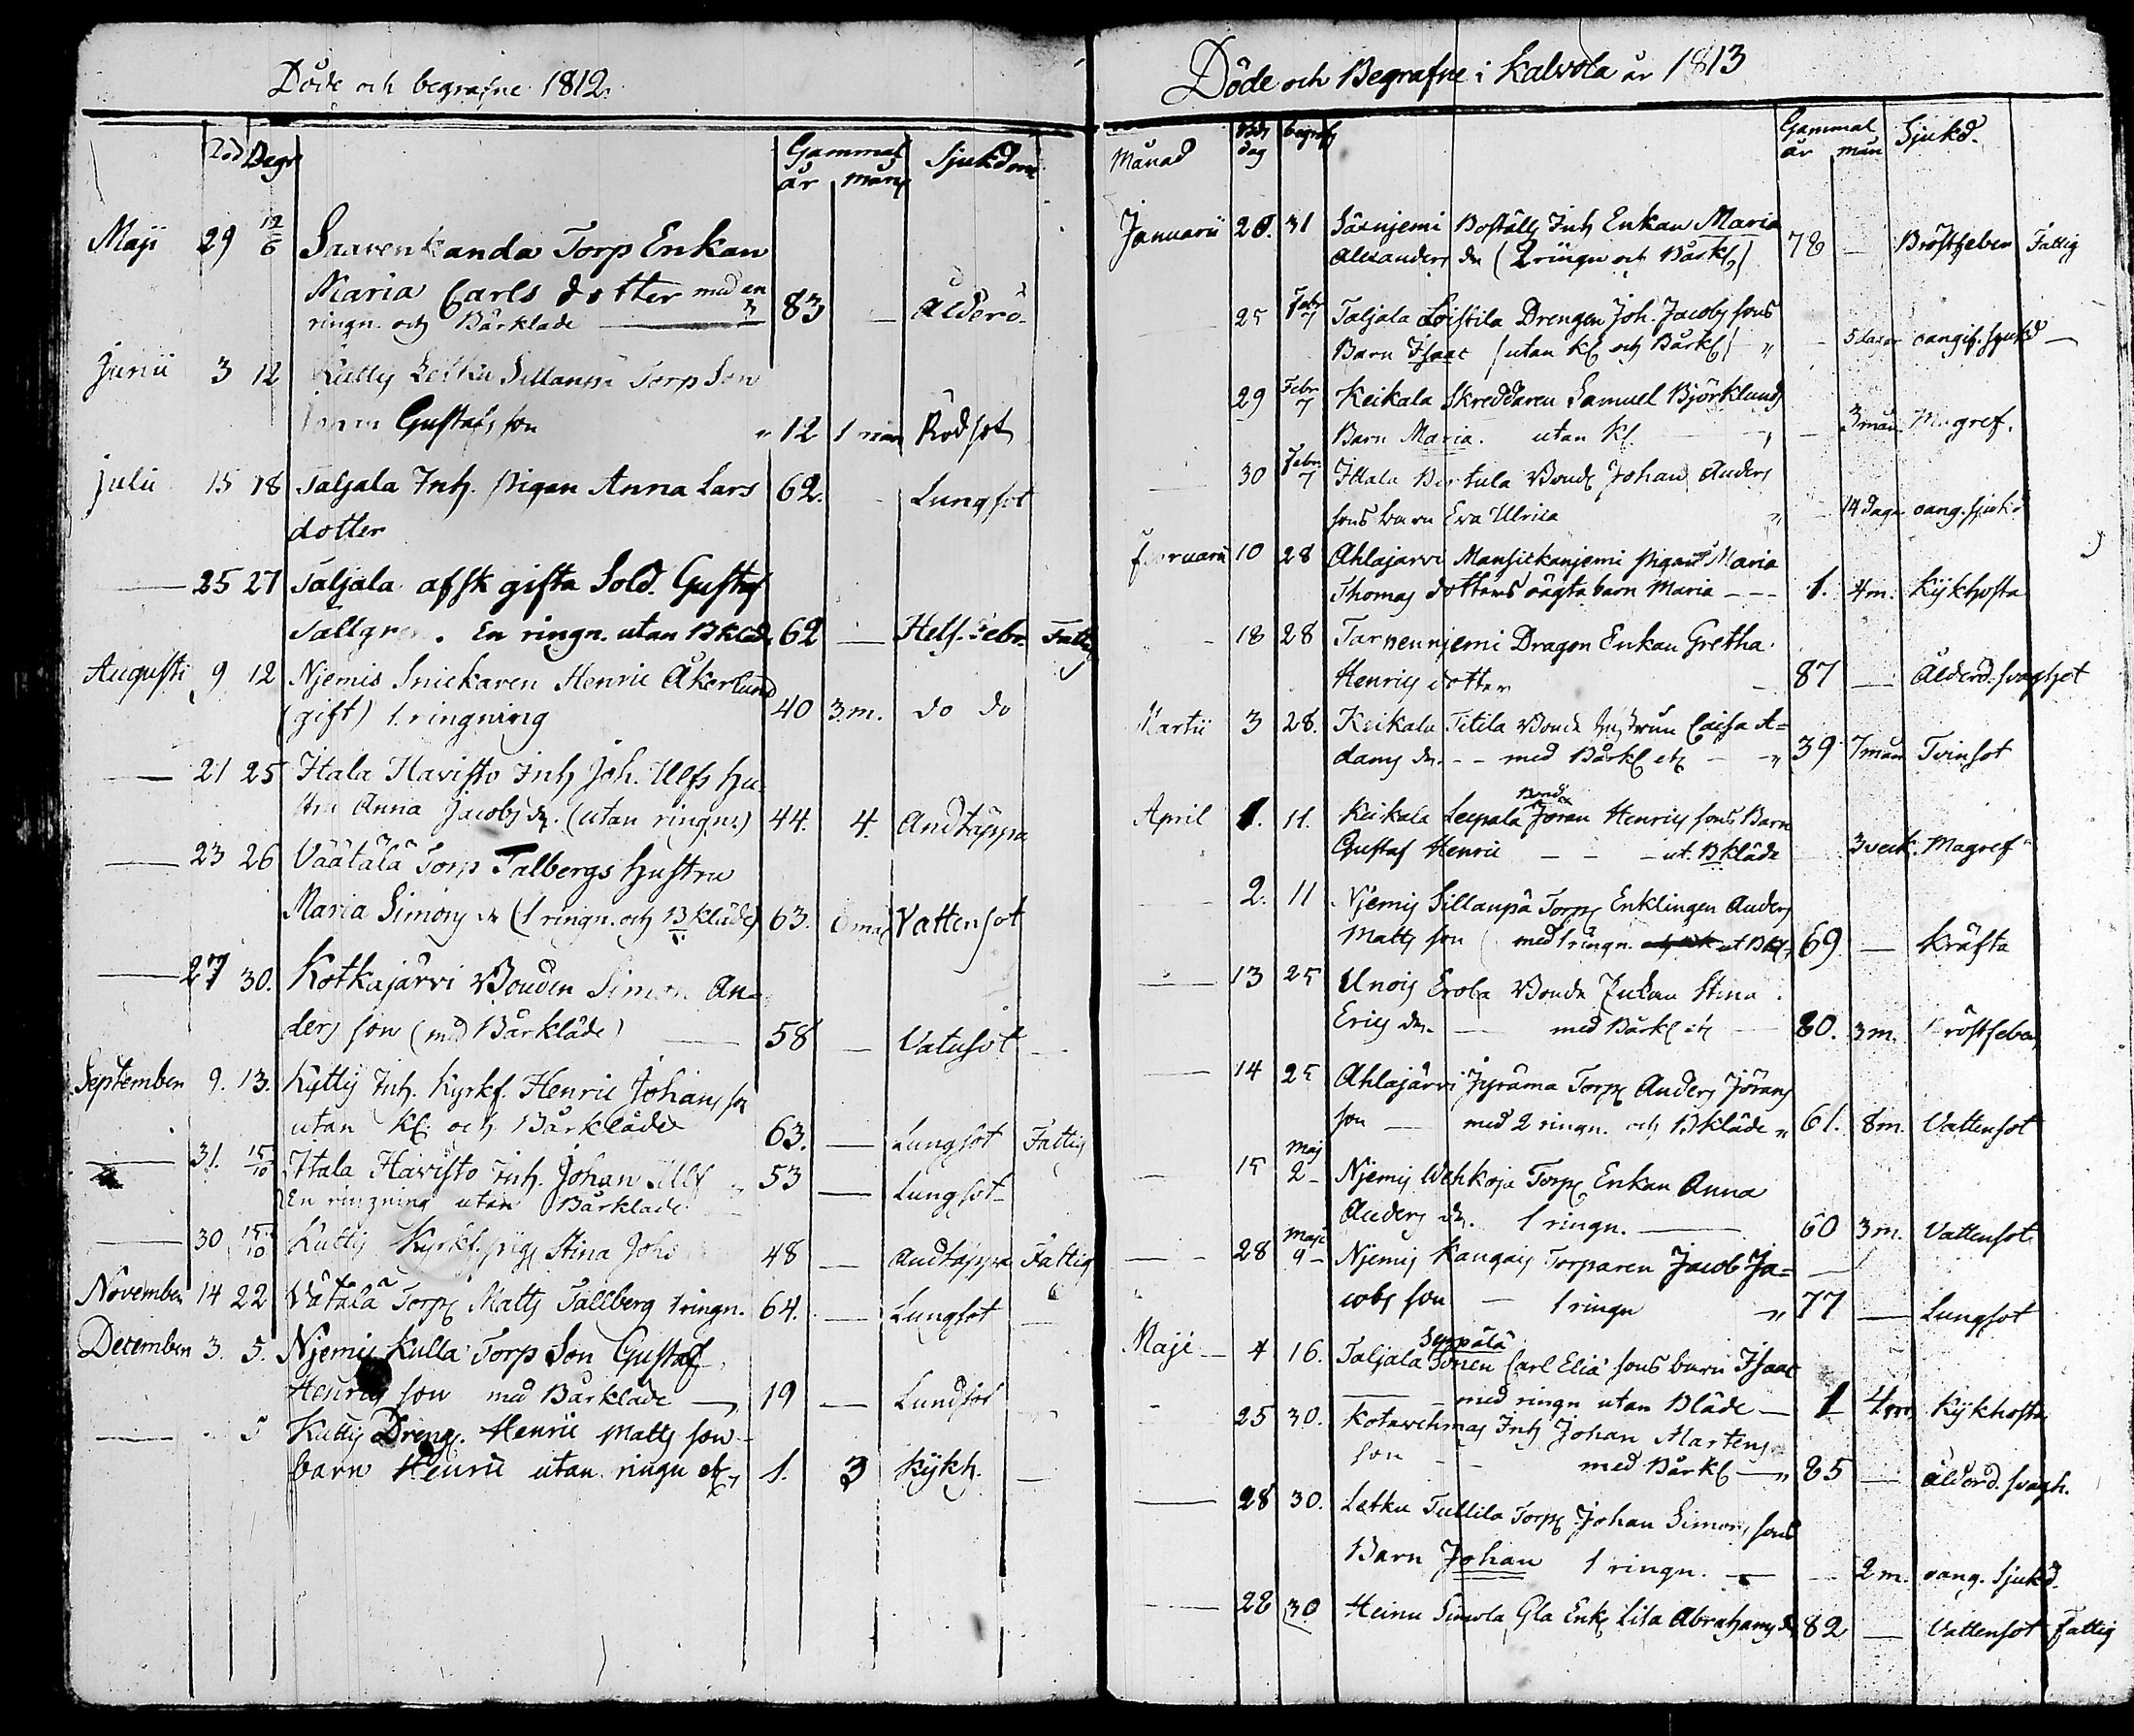 Döde och begrafne 1812.
Död Begr Gammal Sjukdom
år mån
Maji 29 12/6 Saarenkanda Torp Enkan
Maria Carls dotter med en
ringn. och Bårklade 83 — Ålderd.
Junii 3 12 Torp Son
Gustafs son " 12 1 mån Rödsot
Julii 15 18 Taljala Inh. Pigan Anna Lars 62. Lungsot
dotter
— 25 27 Taljala afsk gifta Sold. Gustaf
En ringn. utan Bkläde 62 — Helf. Febr. Fattig
Augusti 9 12 Njemis Snickaren Henric Åkerlund
(gift) 1. ringning 40 3.m. do do
— 21 25 Itala Havisto Inh Joh. Ulfs Hu-
stru Anna Jacobs dr. (utan ringn.) 44. 4. Andtäppa
— 23 26 Väätälä Torp Talbergs Hustru
Maria Simons dr (1 ringn. och Bkläde) 63. Vattensot
— 27 30. Kotkajärvi Bonden Simon An-
ders son (med Bårkläde) — 58 — Vatusot —
September 9. 13. Kytty Inh. Kyrkf. Henric Johans son
utan Kl. och Bårkläde 63. — Lungsot Fattig
— 31. 15/10 Itala Havisto Inh. Johan Ulf " 53 — Lungsot
En ringning utan Bårklade
— 30 15/10 Kutty Kyrkf. pig Stina Joh 48 — Andtäppa Fattig
November 14 22 Vätälä Torp Matts Tallberg 1 ringn. 64. — Lungsot —
December 3. 5. Njemis Kulla Torp Son Gustaf
Henrics son med Bårkläde — 19 — Lundsot
— 5 Kutty Dreng. Henric Matts son
barn Henric utan ringn etc 1. 3 Kykh. —
Döde och Begrafne i Kalvola år 1813
Månad Död dag begrafs Gammal Sjukd.
år mån
Januarii 28. 31 Boställs Inh Enkan Maria
Alexanders dr (2 ringn och Bårkl) 78 — Bröstfeber Fattig
25 Febr 7 Taljala Loistila Drengen Joh. Jacobs sons
Barn Isaac (utan Kl och Bårkl) " — 5 dagar oangif. sjukd —
29 Febr 7 Keikala Skreddaren Samuel Björklunds
Barn Maria. utan Kl. " — 3 mån. Magref.
— 30 Febr. 7 Ittala Bertula Bond Johan Anders
sons barn Eva Ulrica " — 14 dagar oang. sjukd
Februarii 10 28 Ahlajarvi Mansickanjemi Pigans Maria
Thomas dotters oägta barn Maria — — 1. 4 m. Kykhosta
18 28 Tarnennjemi Dragon Enkan Gretha
Henrics dotter — 87 — Ålderd. svaghet
Martii 3 28. Keikala Titila Bonde hustrun Caisa A=
dams dr. — — med Bårkl etc — " 39 7 mån Tvinsot
April 1. 11. Keikala Leepala Bond Jöran Henrics sons Barn
Gustaf Henric — — ut. Bkläde 3 veck. Magref
— 2. 11 Njemis Sillanpä Torp Enklingen Anders
Matts son (med 1 ringn. ut Bkl) 69 — Kräfta
— 13 25 Unois Erola Bonde Enkan Stina
Erics dr. — med Bårkl etc 80. 3 m. Bröstfeber
— 14 25 Ahlajärvi Torp Anders Jörans
son — med 2 ringn. och Bkläde " 61. 8 m. Vattensot
— 15 Maj 2 Njemis Wehkoja Torp Enkan Anna
Anders dr. 1 ringn. — 60 3 m. Vattensot
— 28 Maji 9 Njemis Kangais Torparen Jacob Ja= —
cobs son — 1 ringn " 77 — Lungsot
Maji — 4 16. Taljala Seppälä Sonen Carl Elia sons barn Isaac
— med ringn utan Bläde — 1 4 m Kykhosta
25 30. Kotawehmas Inh Johan Martens
son — — med Bårkl — " 85 — Ålderd. svagh.
— 28 30. Letku Tullila Torp Johan Simons sons
Barn Johan 1 ringn. — — 2 m. oang. sjukd.
— 28 30 Heinu Simola Gla Enk Lisa Abrahams dr 82 — Vattensot Fattig